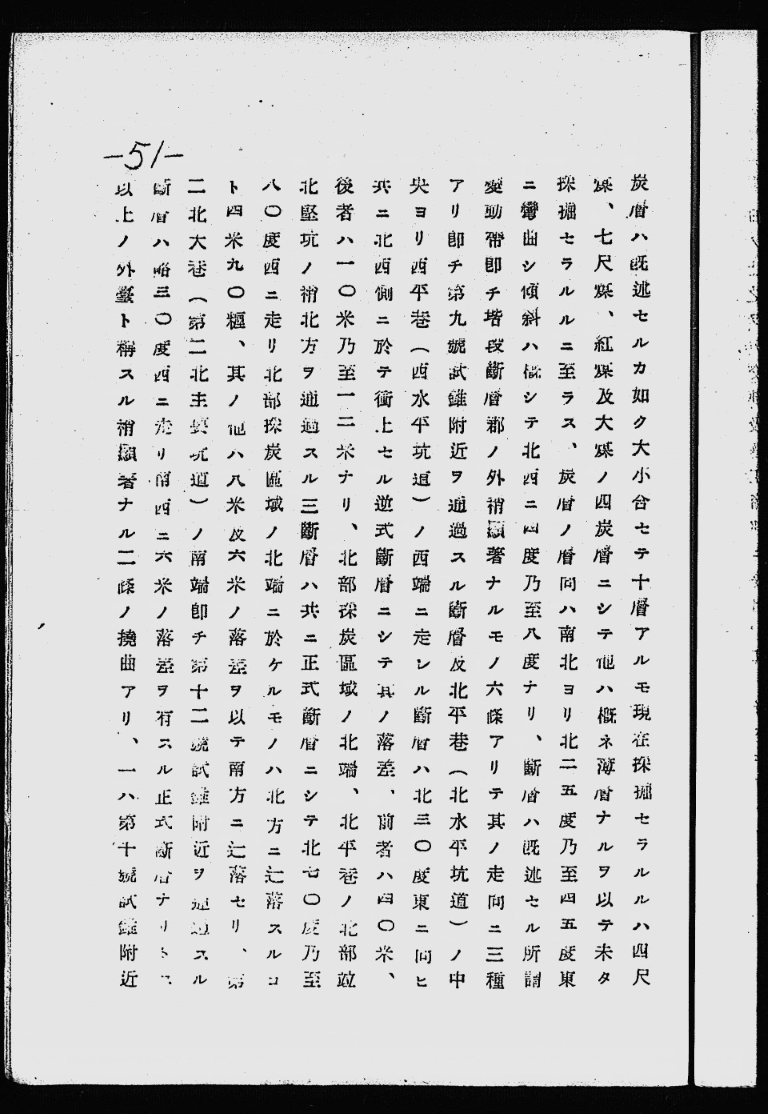 —51—
炭層ハ既述セルカ如ク大小合セテ十層アルモ現在採掘セラルルハ四尺
煤、七尺煤、紅煤及大煤ノ四炭層ニシテ他ハ概ネ薄層ナルヲ以テ未タ
採掘セラルルニ至ラス、炭層ノ層向ハ南北ヨリ北二五度乃至四五度東
ニ彎曲シ傾斜ハ概シテ北西ニ四度乃至八度ナリ、斷層ハ既述セル所謂
變動帶卽チ堦段斷層郡ノ外稍顯著ナルモノ六條アリテ其ノ走向ニ三種
アリ卽チ第九號試錐附近ヲ通過スル斷層及北平巷（北水平坑道）ノ中
央ヨリ西平巷（西水平坑道）ノ西端ニ走シル斷層ハ北三〇度東ニ向ヒ
共ニ北西側ニ於テ衝上セル逆式斷層ニシテ其ノ落差、前者ハ四〇米、
後者ハ一〇米乃至一二米ナリ、北部採炭區域ノ北端、北平巷ノ北部竝
北堅坑ノ稍北方ヲ通過スル三斷層ハ共ニ正式斷層ニシテ北七〇度乃至
八〇度西ニ走リ北部採炭區域ノ北端ニ於ケルモノハ北方ニ辷落スルコ
ト四米九〇糎、其ノ他ハ八米及六米ノ落差ヲ以テ南方ニ辷落セリ、第
二北大巷（第二北主要坑道）ノ南端卽チ第十二號試錐附近ヲ通過スル
斷層ハ略三〇度西ニ走リ南西ニ六米ノ落差ヲ有スル正式斷層ナリトス
以上ノ外嚢ト稱スル稍顯著ナル二條ノ撓曲アリ、一ハ第十號試錐附近